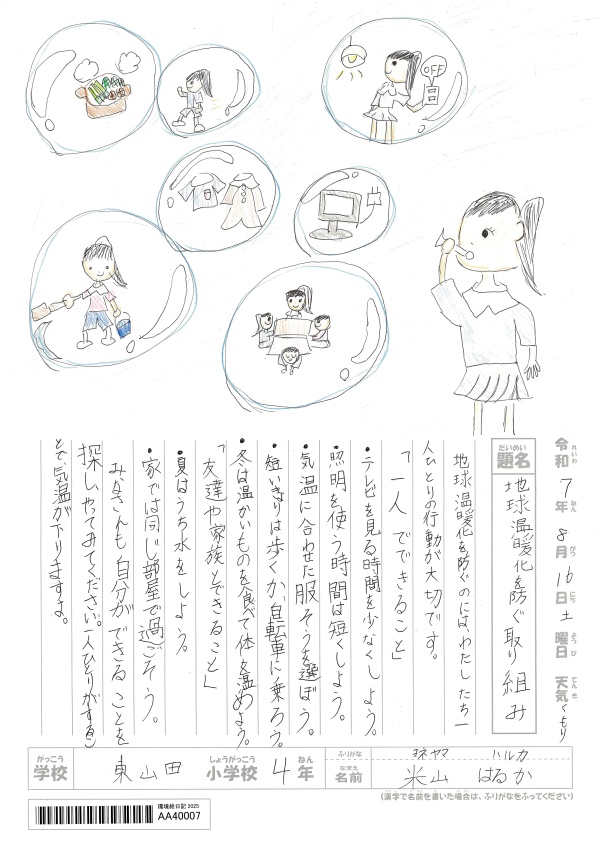 OFF
令和7年8月16日土曜日 天気くもり
れいわ ねん がつ にち ようび てんき
だいめい
題名 地球温暖化を防ぐ取り組み
地球温暖化を防ぐのには、わたしたち一
人ひとりの行動が大切です。
「一人でできること」
・テレビを見る時間を少なくしよう。
・照明を使う時間は短くしよう。
・気温に合わせた服そうを選ぼう。
・短いきょりは歩くか、自転車に乗ろう。
・冬は温かいものを食べて体を温めよう。
「友達や家族とできること」
・夏はうち水をしよう。
・家では同じ部屋で過ごそう。
みなさんも自分ができることを
探し、やってみてください。一人ひとりがするこ
とで、気温が下りますよ。
がっこう しょうがっこう ねん
学校 東山田 小学校 4年
ふりがな ヨネヤマ ハルカ
なまえ
名前 米山 はるか
(漢字で名前を書いた場合は、ふりがなをふってください)
環境絵日記 2025
AA40007